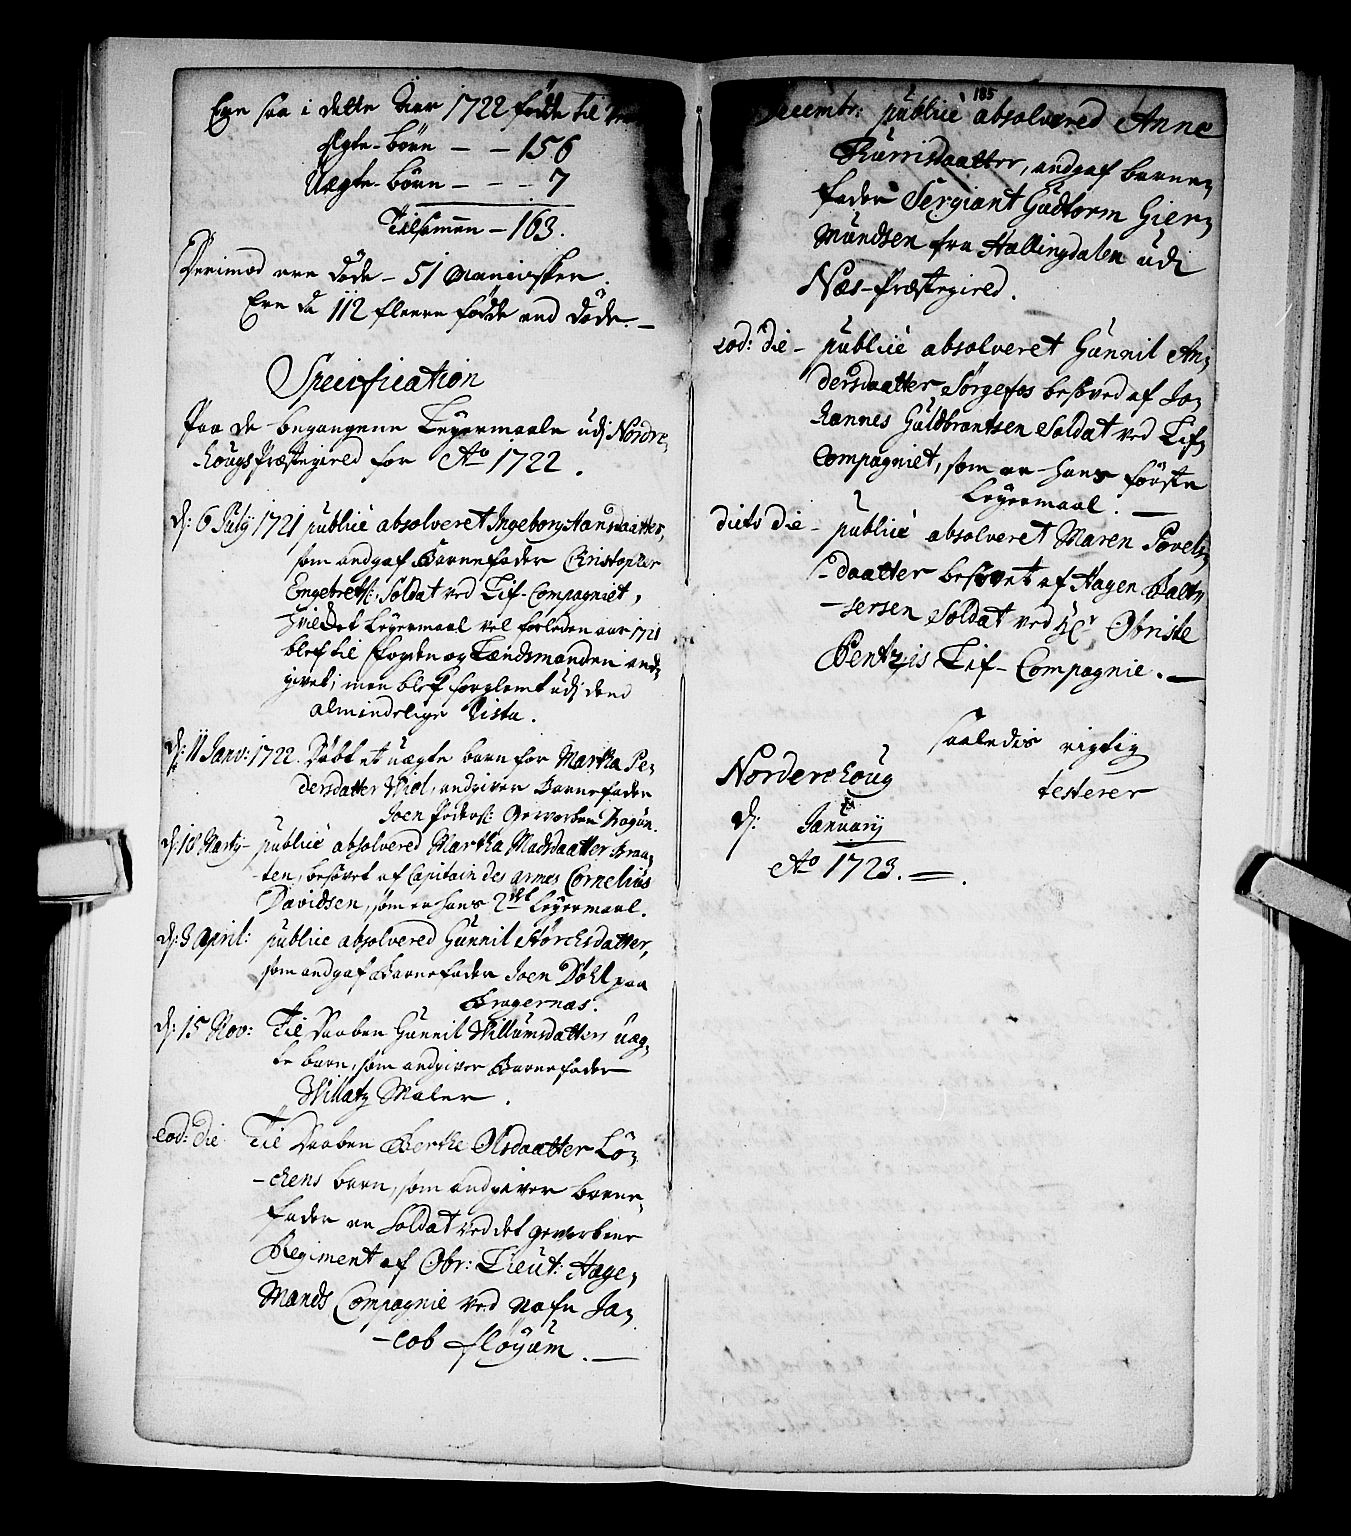 Ere saa i dette Aar 1722 fødde til
Ægte-børn - - 156
Uægte-børn - - - 7
Tilsamen - 163.
Derimod ere døde - 51 Mennisker.
Ere da 112 fleere fødde end døde. -
Specification
Paa de begangene Leyermaale udj Nordre,
hougs Præstegield for Ao 1722.
d: 6 July 1721 publicè absolveret Ingeborg Hansdaatter,
som angaf Barnefader Christopher
Engebretss: Soldat ved Lif-Compagniet,
hvilcket Leyermaal vel forleden aar 1721
blef til fogden og Lændsmanden and,
givet, men blef forglemt udj dend
almindelige Lista.
d: 11 Janv: 1722. Døbt et uægte barn for Martha Pe,
dersdatter Hiol, angiver Barnefader
Joen Peders: Geworben Dragun.
d: 18 Marty - publicè absolvered Martha Madsdaatter Braa,
ten, besovet af Capitain des armes Cornelius
Davidsen, som er hans 2det Leyermaal.
d: 3 April: publicè absolvered Gunnil Størchsdatter,
som andgaf Barnefader Joen Døhl paa
Bragernæs.
d: 15 Nov: Til Daaben Gunnil Willumsdatters uæg,
te barn, som andgiver Barnefader
Willatz Maler.
eod: die Til Daaben Berthe Olsdaatter Lö,
-chens barn, som andgiver barne,
fader en Soldat ved det geworbene
Regiment af Obr: Lieut: Hage,
Mands Compagnie ved Nafn Ja,
-cob fløyum. -
185
Decembr: publicè absolvered Anne
Thurrisdaatter, andgaf barne,
fader Sergiant Gudtorm Gier,
Mundsen fra Hallingdalen udi
Næs-Præstegield.
eod: die - publicè absolveret Gunnil An,
dersdaatter Sørgefos besoved af Jo,
hannes Guldbrantsen Soldat ved Lif,
Compagniet, som er hans første
Leyermaal. -
dicto die - publicè absolveret Maren Povels,
-daatter besovet af Hagen Balt,
-zersen Soldat ved Hr Obriste
Bentzis Lif-Compagnie. -
saaledis rigtig
Norderehoug testerer
d: January
Ao 1723.